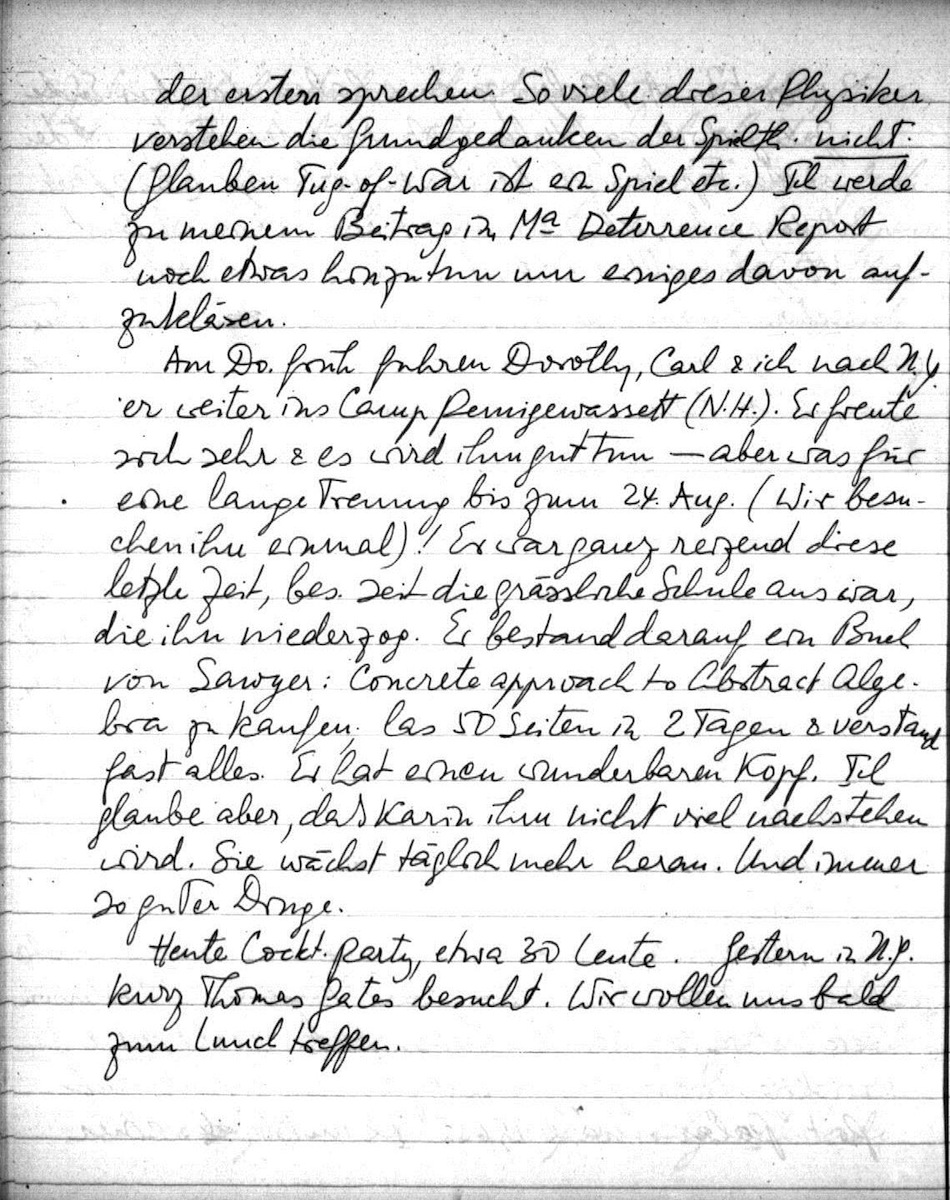 der ersten sprechen. So viele dieser Physiker
verstehen die Grundgedanken der Spielth. nicht.
(Glauben Tug-of-War ist ein Spiel etc.) Ich werde
zu meinem Beitrag in Ma Deterrence Report
noch etwas hinzutun um einiges davon auf-
zuklären.
Am Do. früh fuhren Dorothy, Carl & ich nach N.Y.
er weiter ins Camp Pemigewassett (N.H.). Er freute
sich sehr & es wird ihm gut tun — aber was für
eine lange Trennung bis zum 24. Aug. (Wir besu-
chen ihn einmal)! Er war ganz reizend diese
letzte Zeit, bes. seit die grässliche Schule aus war,
die ihn niederzog. Er bestand darauf ein Buch
von Sawyer: Concrete approach to Abstract Alge-
bra zu kaufen, las 50 Seiten in 2 Tagen & verstand
fast alles. Er hat einen wunderbaren Kopf. Ich
glaube aber, daß Karin ihm nicht viel nachstehen
wird. Sie wächst täglich mehr heran. Und immer
so guter Dinge.
Heute Cockt. party, etwa 30 Leute. Gestern in N.Y.
kurz Thomas Gates besucht. Wir wollen uns bald
zum Lunch treffen.